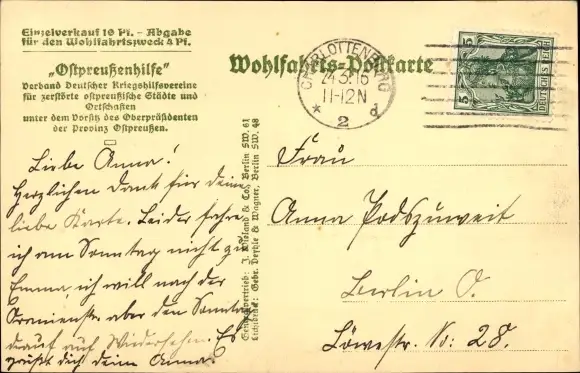 Einzelverkauf 10 Pf. – Abgabe
für den Wohlfahrtszweck 4 Pf.
"Ostpreußenhilfe"
Verband Deutscher Kriegshilfsvereine
für zerstörte ostpreußische Städte und
Ortschaften
unter dem Vorsitz des Oberpräsidenten
der Provinz Ostpreußen.
Liebe Anna!
Herzlichen Dank für deine
liebe Karte. Leider fahre
ich am Sonntag nicht zu
Emma ich will nach der
Oranienstr. aber den Sonntag
darauf auf Wiedersehn. Es
grüßt dich deine Anna.
Generalvertrieb: J. Wieland & Co., Berlin SW. 61
Lichtdruck: Gebr. Deyhle & Wagner, Berlin SW. 48
Wohlfahrts-Postkarte
CHARLOTTENBURG
24.3.16
11-12N
* 2 d
5 5
DEUTSCHES REICH
Frau
Anna Podszuweit
Berlin O.
Löwestr. No: 28.